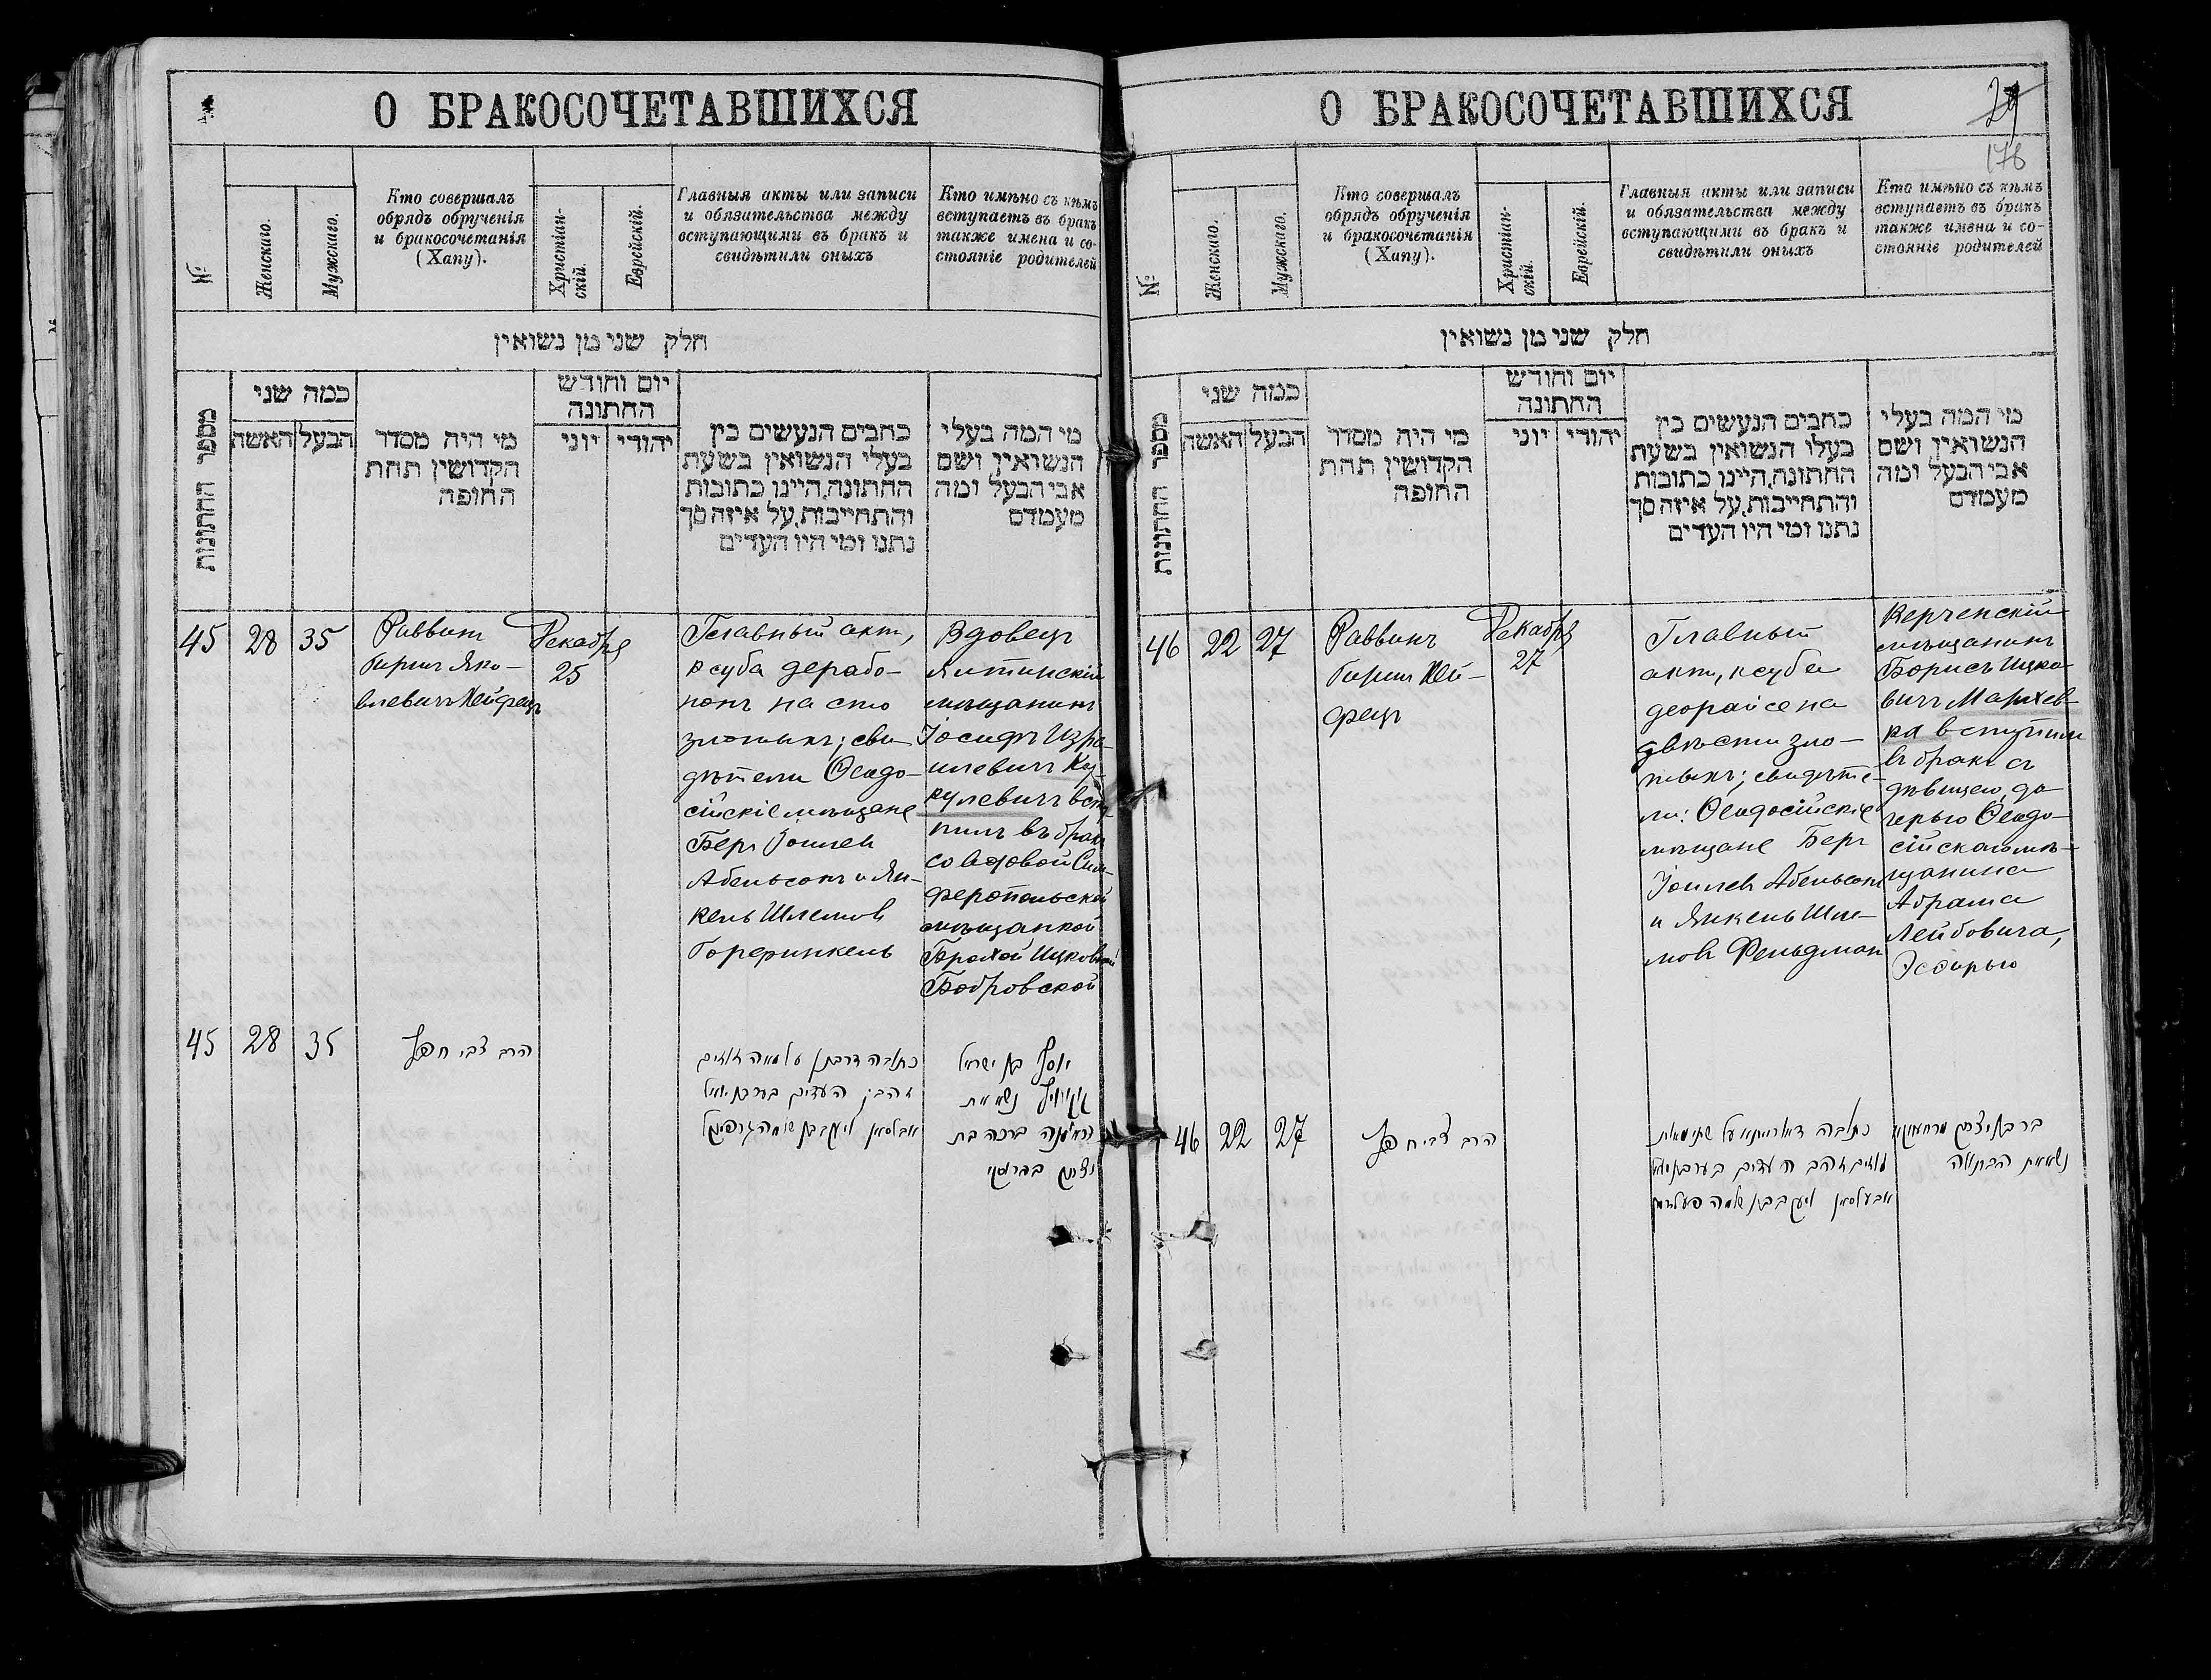 О БРАКОСОЧЕТАВШИХСЯ
№
Женскаго.
Мужскаго.
Кто совершалъ
обрядъ обрученія
и бракосочетанія
(Хапу).
Христіан-
скій.
Еврейскій.
Главныя акты или записи
и обязательства между
вступающими въ бракъ и
свидѣтили оныхъ
Кто имѣно съ кѣмъ
вступаетъ въ бракъ
также имена и со-
стояніе родителей
חלק שני מן נשואין
מספר החתונות
כמה שני
האשה
הבעל
מי היה מסדר
הקדושין תחת
החופה
יום וחודש
החתונה
יוני
יהודי
כתבים הנעשים בין
בעלי הנשואין בשעת
החתונה, היינו כתובות
והתחייבות, על איזה סך
נתנו ומי היו העדים
מי המה בעלי
הנשואין ושם
אבי הבעל ומה
מעמדם
45
28
35
Раввинъ
Гиршъ Яко-
влевичъ Хейфецъ
Декабря
25
Главный актъ,
ксуба дерабо-
нонъ на сто
злотыхъ; сви-
дѣтели Ѳеодо-
сійскіе мѣщане
Беръ Іоилевъ
Абельсонъ и Ян-
кель Шлемов
Горфинкель
Вдовецъ
Ялтинскій
мѣщанинъ
Іосифъ Изра-
илевичъ Ку-
кулевичъ всту-
пилъ въ бракъ
со вдовой Сим-
феропольской
мѣщанкой
Брахой Ицковной
Бобровской
45
28
35
הרב צבי חפץ
כתובה דרבנן על מאה זהובים
העדים
יוסף בן ישראל
נשא את
האלמנה ברכה בת
О БРАКОСОЧЕТАВШИХСЯ
29
176
№
Женскаго.
Мужскаго.
Кто совершалъ
обрядъ обрученія
и бракосочетанія
(Хапу).
Христіан-
скій.
Еврейскій.
Главныя акты или записи
и обязательства между
вступающими въ бракъ и
свидѣтили оныхъ
Кто имѣно съ кѣмъ
вступаетъ въ бракъ
также имена и со-
стояніе родителей
חלק שני מן נשואין
מספר החתונות
כמה שני
האשה
הבעל
מי היה מסדר
הקדושין תחת
החופה
יום וחודש
החתונה
יוני
יהודי
כתבים הנעשים בין
בעלי הנשואין בשעת
החתונה, היינו כתובות
והתחייבות, על איזה סך
נתנו ומי היו העדים
מי המה בעלי
הנשואין ושם
אבי הבעל ומה
מעמדם
46
22
27
Раввинъ
Гиршъ Хей-
фецъ
Декабря
27
Главный
актъ, ксуба
деорайсе на
двѣсти зло-
тыхъ; свидѣте-
ли: Ѳеодосійскіе
мѣщане Беръ
Іоилев Абельсонъ
и Янкель Шле-
мов Фельдман
Керченскій
мѣщанинъ
Борисъ Ицко-
вичъ
вступилъ
въ бракъ съ
дѣвицею, до-
черью Ѳеодо-
сійскаго мѣ-
щанина
Абрама
Лейбовича,
Эсѳирью
46
22
27
הרב צבי חפץ
כתובה דאורייתא על שתי מאות
זהב העדים
שלמה פעלדמן
נשא את הבתולה